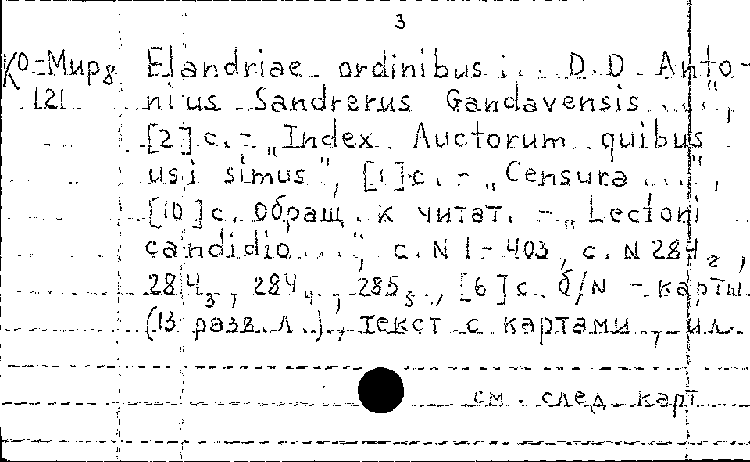 3
К⁰=Мир₈ Elandriae ordinibus: .. D.D Anto-
121 nius Sandrerus Gandavensis ...",
[2] с. - „Index Auctorum quibus
usi simus", [1] с. - „Censura ...",
[10] с. обращ. к читат. - „Lectoni
candidio ...", с. N 1-403, с. N 284₂,
284₃, 284₄, 285₅., [6] с. б/N - карты
(13 разв. л.), текст с картами, ил.
см. след. карт